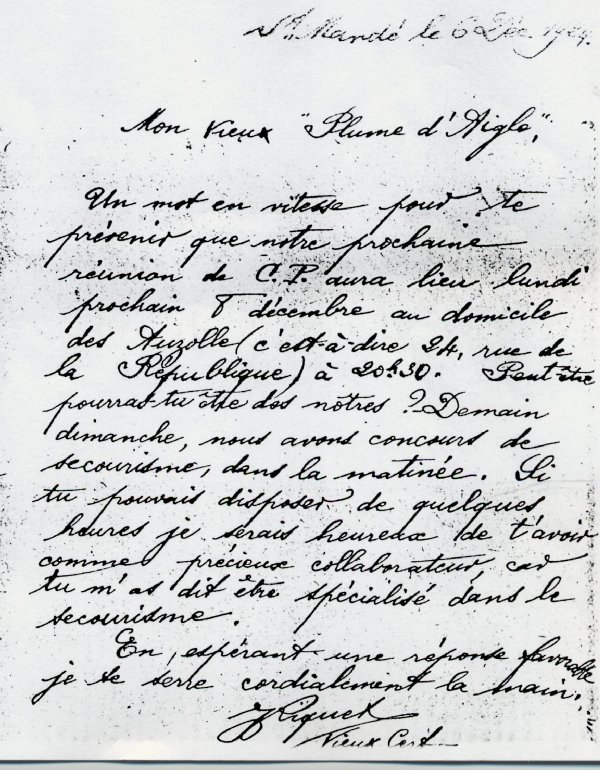 St Mandé le 6 Déc.
Mon vieux "Plume d'Aigle",
Un mot en vitesse pour te
prévenir que notre prochaine
réunion de C.P. aura lieu lundi
prochain 8 décembre au domicile
des Auzolle (c'est-à-dire 24, rue de
la République) à 20h30. Peut-être
pourras-tu être des nôtres ? Demain
dimanche, nous avons concours de
secourisme, dans la matinée. Si
tu pouvais disposer de quelques
heures je serais heureux de t'avoir
comme précieux collaborateur, car
tu m'as dit être spécialisé dans le
secourisme.
En, espérant une réponse favorable
je te serre cordialement la main.
J Riquet
Vieux Cerf